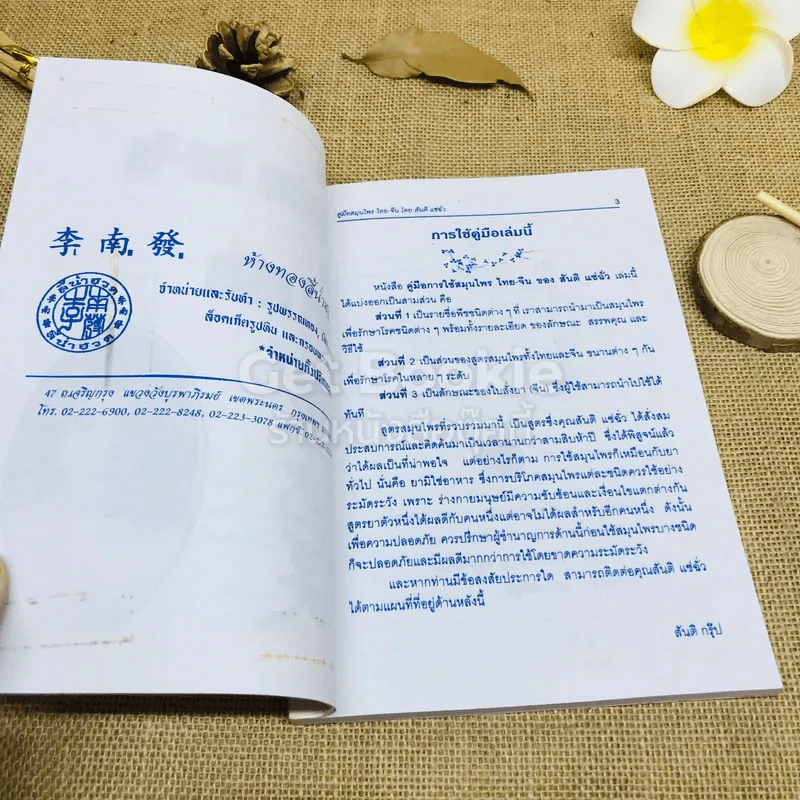 李南發
ห้างทองลี้น่ำ
จำหน่ายและรับทำ : รูปพรรณทอง,
ล็อคเก็ตรูปถิ่น และกรอบพระ
47 ถ.เจริญกรุง แขวงวังบูรพาภิรมย์ เขตพระนคร กรุงเทพฯ
โทร. 02-222-6900, 02-222-8248, 02-223-3078 แฟกซ์
ลี้น่ำฮวด
ลี้น่ำฮวด
คู่มือสมุนไพร ไทย-จีน โดย สันติ แซ่ฉั่ว 3
การใช้คู่มือเล่มนี้
หนังสือ คู่มือการใช้สมุนไพร ไทย-จีน ของ สันติ แซ่ฉั่ว เล่มนี้
ได้แบ่งออกเป็นสามส่วน คือ
ส่วนที่ 1 เป็นรายชื่อพืชชนิดต่าง ๆ ที่ เราสามารถนำมาเป็นสมุนไพร
เพื่อรักษาโรคชนิดต่าง ๆ พร้อมทั้งรายละเอียด ของลักษณะ สรรพคุณ และ
วิธีใช้
ส่วนที่ 2 เป็นส่วนของสูตรสมุนไพรทั้งไทยและจีน ขนานต่าง ๆ กัน
เพื่อรักษาโรคในหลาย ๆ ระดับ
ส่วนที่ 3 เป็นลักษณะของใบสั่งยา (จีน) ซึ่งผู้ใช้สามารถนำไปใช้ได้
ทันที
สูตรสมุนไพรที่รวบรวมมานี้ เป็นสูตรซึ่งคุณสันติ แซ่ฉั่ว ได้สั่งสม
ประสบการณ์และคิดค้นมาเป็นเวลานานกว่าสามสิบห้าปี ซึ่งได้พิสูจน์แล้ว
ว่าได้ผลเป็นที่น่าพอใจ แต่อย่างไรก็ตาม การใช้สมุนไพรก็เหมือนกับยา
ทั่วไป นั่นคือ ยามิใช่อาหาร ซึ่งการบริโภคสมุนไพรแต่ละชนิดควรใช้อย่าง
ระมัดระวัง เพราะ ร่างกายมนุษย์มีความซับซ้อนและเงื่อนไขแตกต่างกัน
สูตรยาตัวหนึ่งได้ผลดีกับคนหนึ่งแต่อาจไม่ได้ผลสำหรับอีกคนหนึ่ง ดังนั้น
เพื่อความปลอดภัย ควรปรึกษาผู้ชำนาญการด้านนี้ก่อนใช้สมุนไพรบางชนิด
ก็จะปลอดภัยและมีผลดีมากกว่าการใช้โดยขาดความระมัดระวัง
และหากท่านมีข้อสงสัยประการใด สามารถติดต่อคุณสันติ แซ่ฉั่ว
ได้ตามแผนที่ที่อยู่ด้านหลังนี้
สันติ กรุ๊ป
Get Bookie
ร้านหนังสือกุ๊กกี้